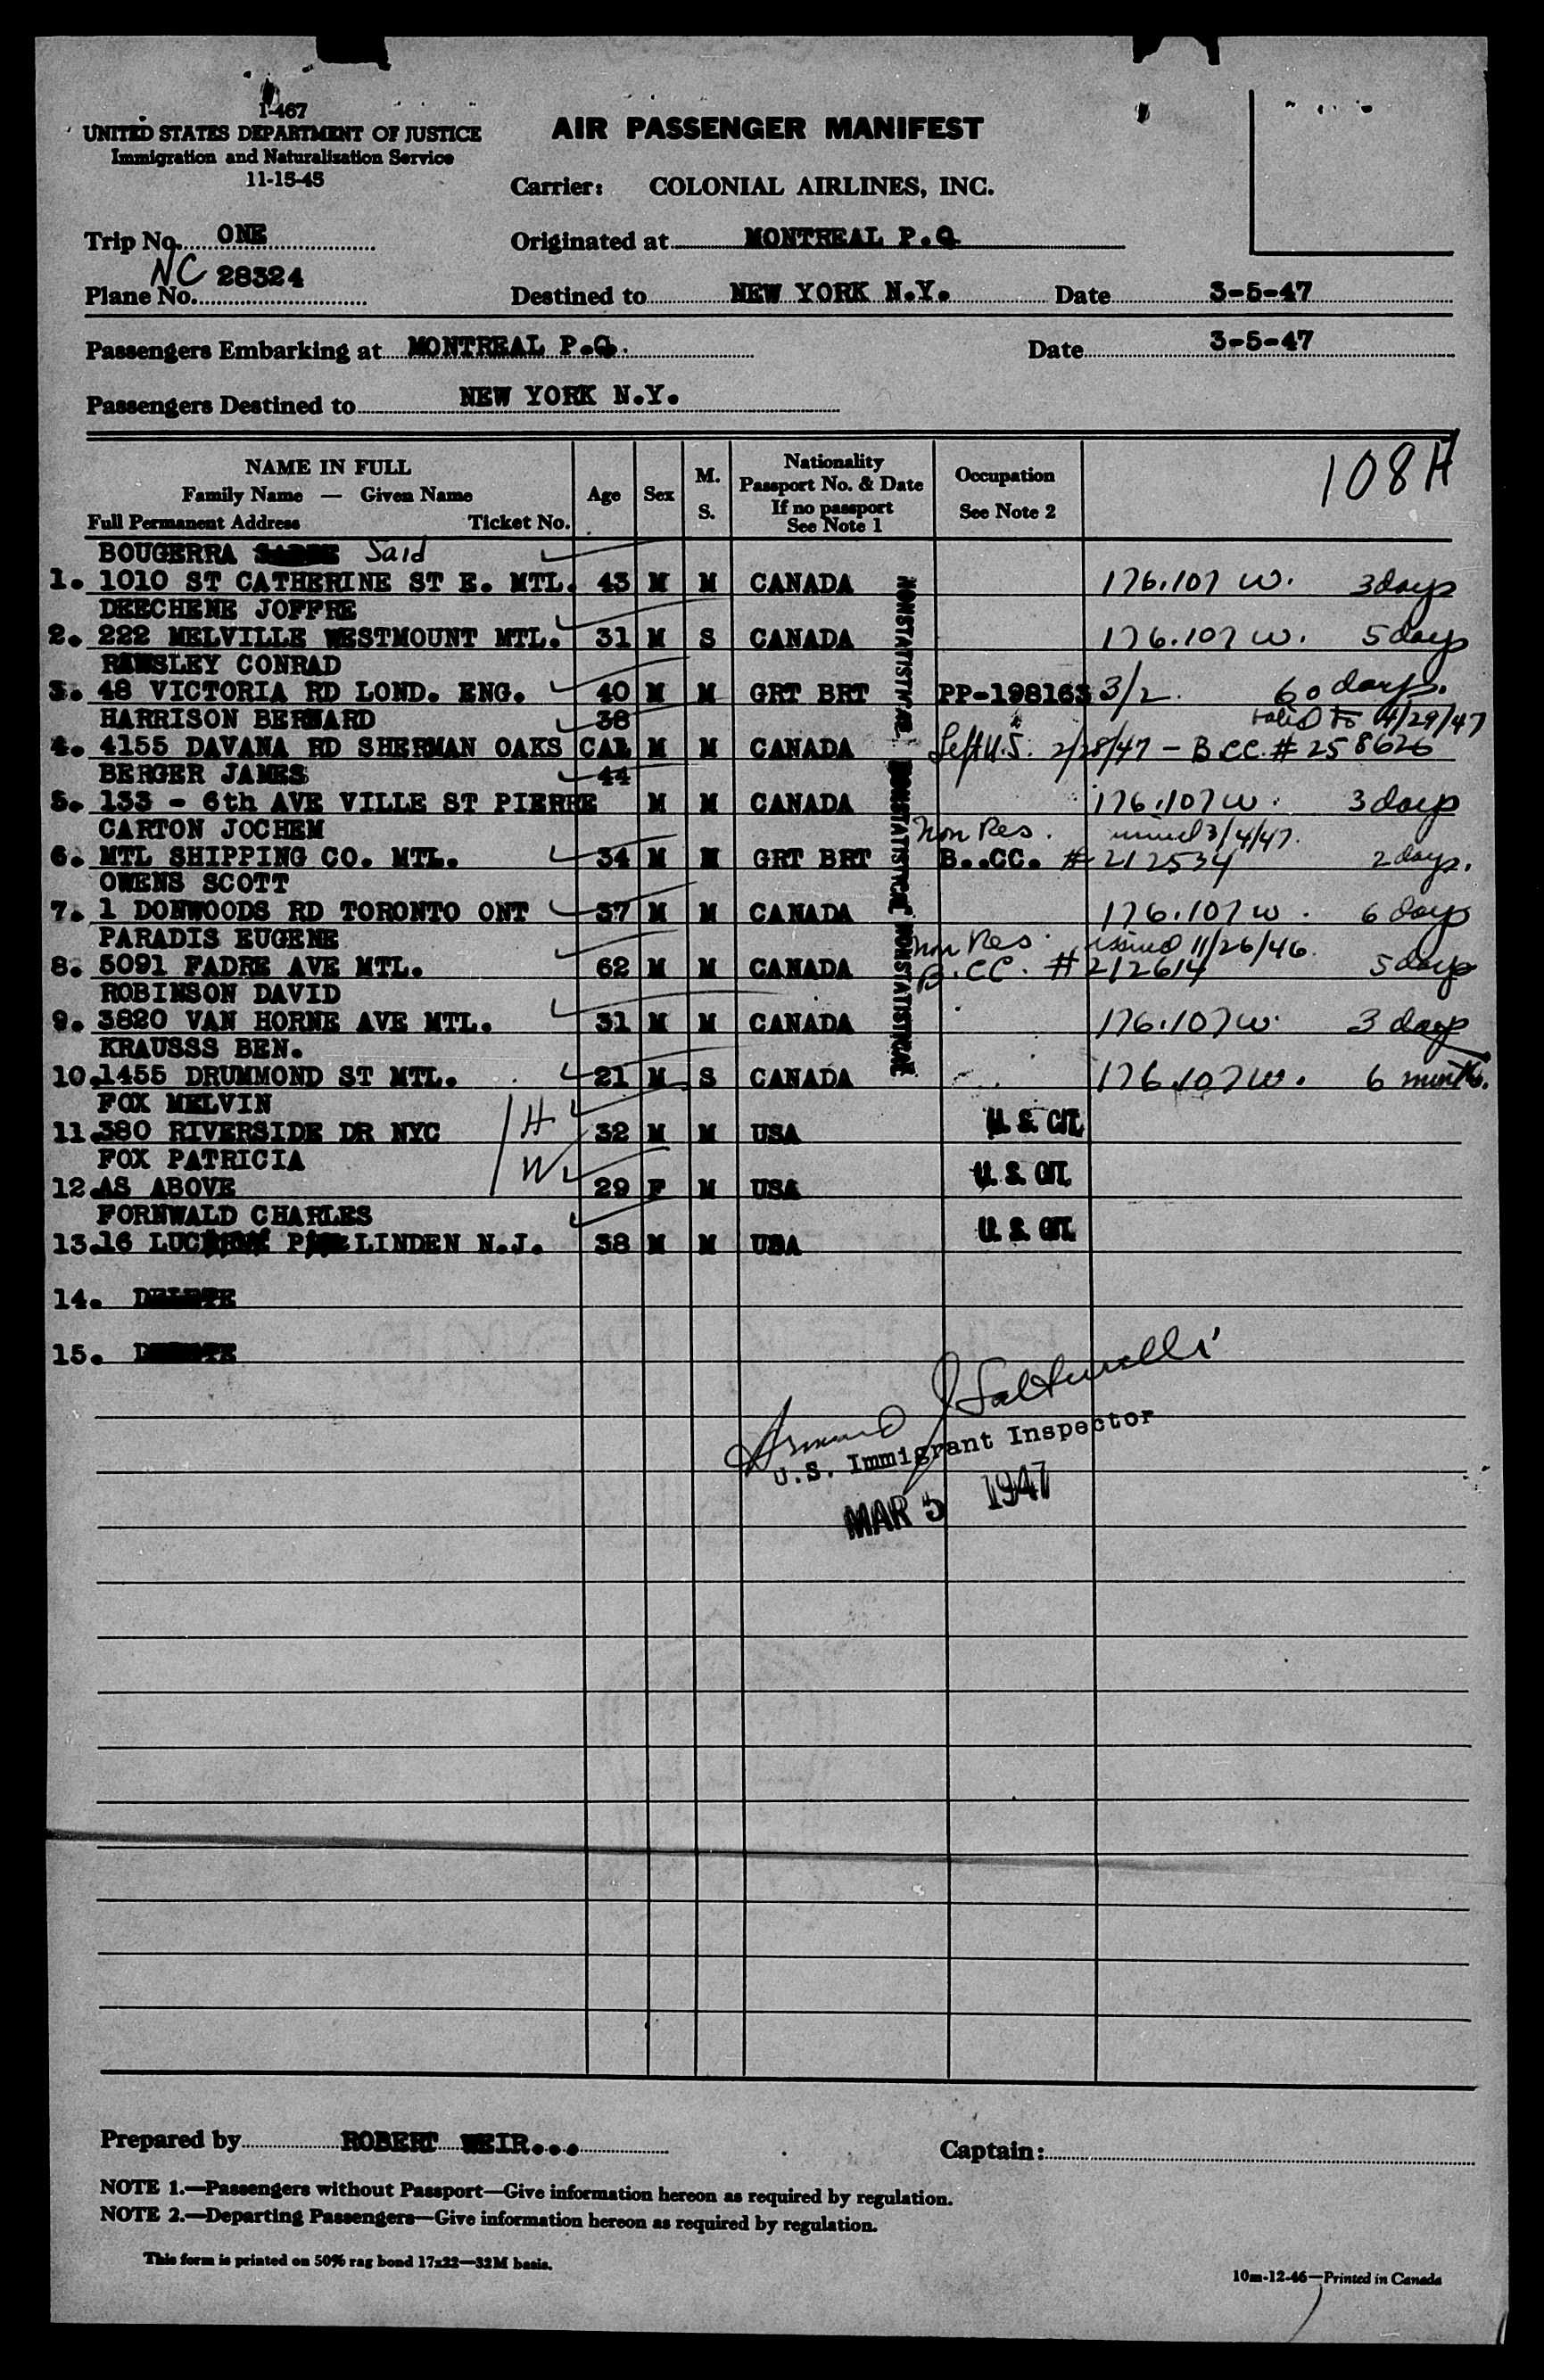 I-467
UNITED STATES DEPARTMENT OF JUSTICE
Immigration and Naturalization Service
11-15-45
AIR PASSENGER MANIFEST
Carrier: COLONIAL AIRLINES, INC.
Trip No. ONE
Originated at MONTREAL P.Q
Plane No. NC 28324
Destined to NEW YORK N.Y. Date 3-5-47
Passengers Embarking at MONTREAL P.Q. Date 3-5-47
Passengers Destined to NEW YORK N.Y.
108 H
NAME IN FULL
Family Name — Given Name
Full Permanent Address Ticket No.
Age
Sex
M.
S.
Nationality
Passport No. & Date
If no passport
See Note 1
Occupation
See Note 2
BOUGERRA Said
1. 1010 ST CATHERINE ST E. MTL. 43 M M CANADA 176.107 W. 3 days
DEECHENE JOFFRE
2. 222 MELVILLE WESTMOUNT MTL. 31 M S CANADA 176.107 W. 5 days
CONRAD
3. 48 VICTORIA RD LOND. ENG. 40 M M GRT BRT PP-198163 3/2. 60 days.
HARRISON BERNARD 38 valid to 4/29/47
4. 4155 DAVANA RD SHERMAN OAKS CAL M M CANADA Left U.S. 2/28/47 - B.C.C. # 258626
BERGER JAMES 44
5. 133 - 6th AVE VILLE ST PIERRE M M CANADA 176.107 W. 3 days
CARTON JOCHEM Non Res. issued 3/4/47.
6. MTL SHIPPING CO. MTL. 34 M M GRT BRT B..CC. # 212534 2 days.
OWENS SCOTT
7. 1 DONWOODS RD TORONTO ONT 37 M M CANADA 176.107 W. 6 days
PARADIS EUGENE Non Res. issued 11/26/46.
8. 5091 FADRE AVE MTL. 62 M M CANADA B.CC. # 212614 5 days
ROBINSON DAVID
9. 3820 VAN HORNE AVE MTL. 31 M M CANADA 176.107 W. 3 days
KRAUSSS BEN.
10. 1455 DRUMMOND ST MTL. 21 M S CANADA 176.107 W. 6 months.
NONSTATISTICAL
NONSTATISTICAL
NONSTATISTICAL
FOX MELVIN H
11. 380 RIVERSIDE DR NYC 32 M M USA U. S. CIT.
FOX PATRICIA W
12. AS ABOVE 29 F M USA U. S. CIT.
FORNWALD CHARLES
13. 16 LINDEN N.J. 38 M M USA U. S. CIT.
14.
15.
U.S. Immigrant Inspector
MAR 5 1947
Prepared by ROBERT WEIR...
Captain:
NOTE 1.—Passengers without Passport—Give information hereon as required by regulation.
NOTE 2.—Departing Passengers—Give information hereon as required by regulation.
This form is printed on 50% rag bond 17x22—32M basis.
10m-12-46—Printed in Canada